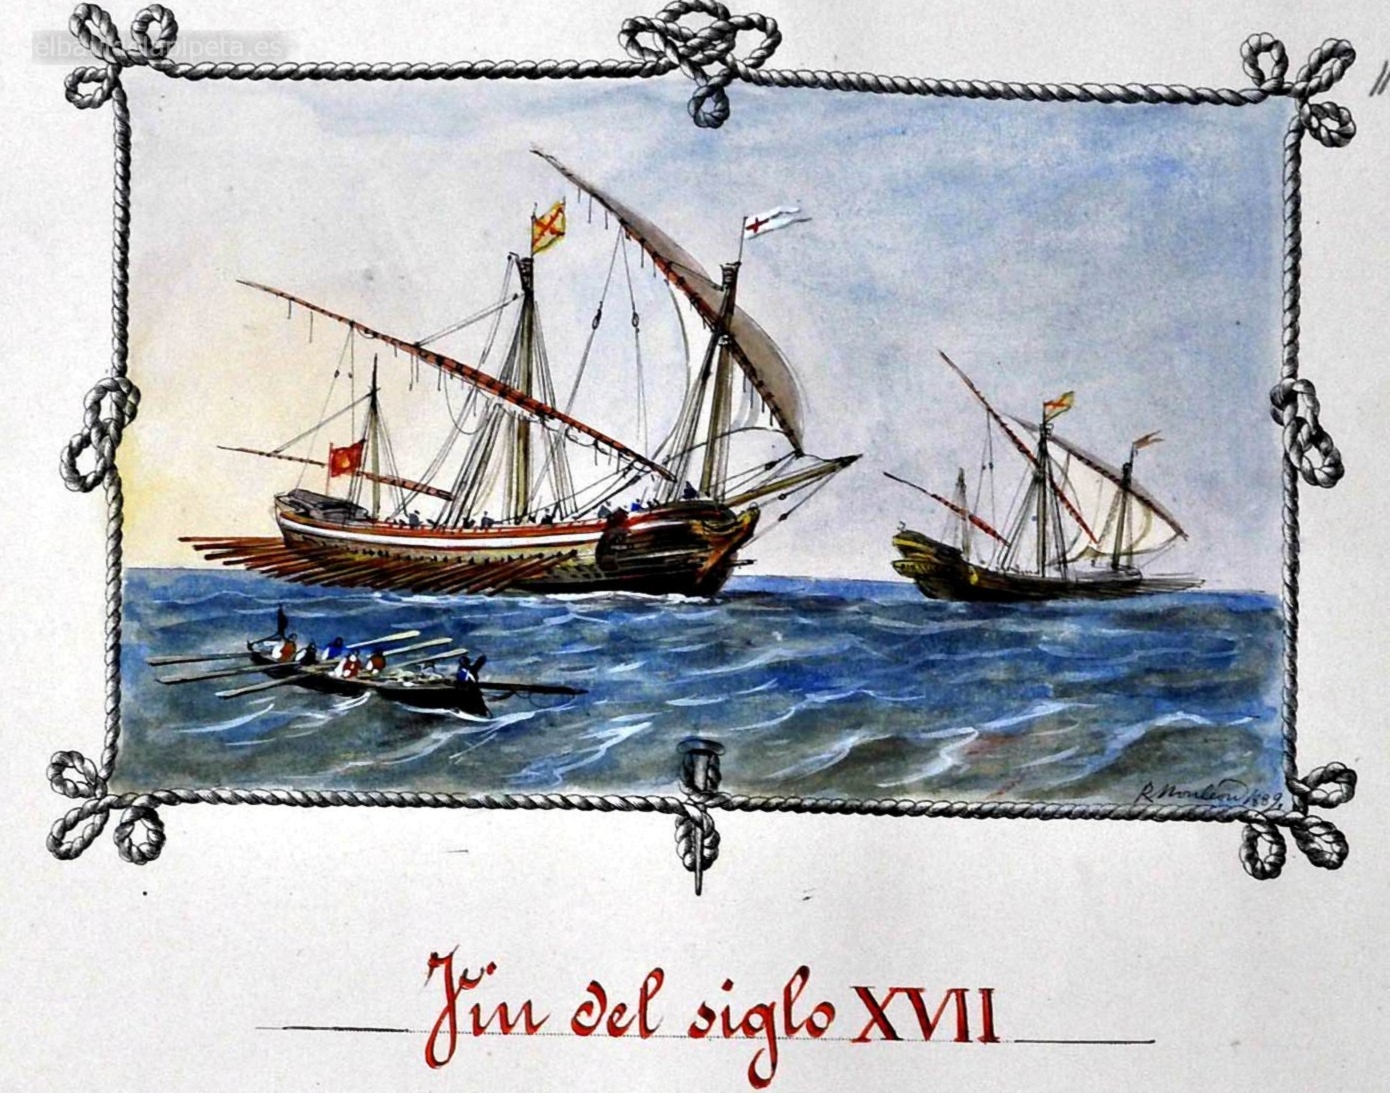 elbauldelapipeta.es
R. Monleón 1889
Fin del siglo XVII